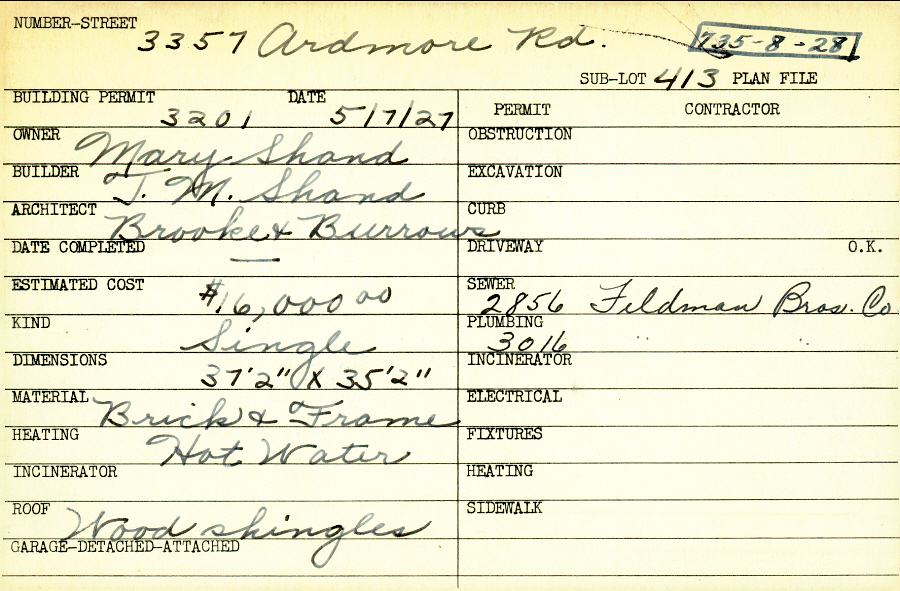 NUMBER-STREET 3357 Ardmore Rd. 735-8-28
SUB-LOT 413 PLAN FILE
BUILDING PERMIT 3201 DATE 5/7/27
OWNER Mary Shand
BUILDER T. M. Shand
ARCHITECT Brooke & Burrows
DATE COMPLETED —
ESTIMATED COST $16,000 00
KIND Single
DIMENSIONS 37'2" X 35'2"
MATERIAL Brick & Frame
HEATING Hot Water
INCINERATOR
ROOF Wood shingles
GARAGE-DETACHED-ATTACHED
PERMIT CONTRACTOR
OBSTRUCTION
EXCAVATION
CURB
DRIVEWAY O.K.
SEWER 2856 Feldman Bros. Co
PLUMBING 3016 " "
INCINERATOR
ELECTRICAL
FIXTURES
HEATING
SIDEWALK